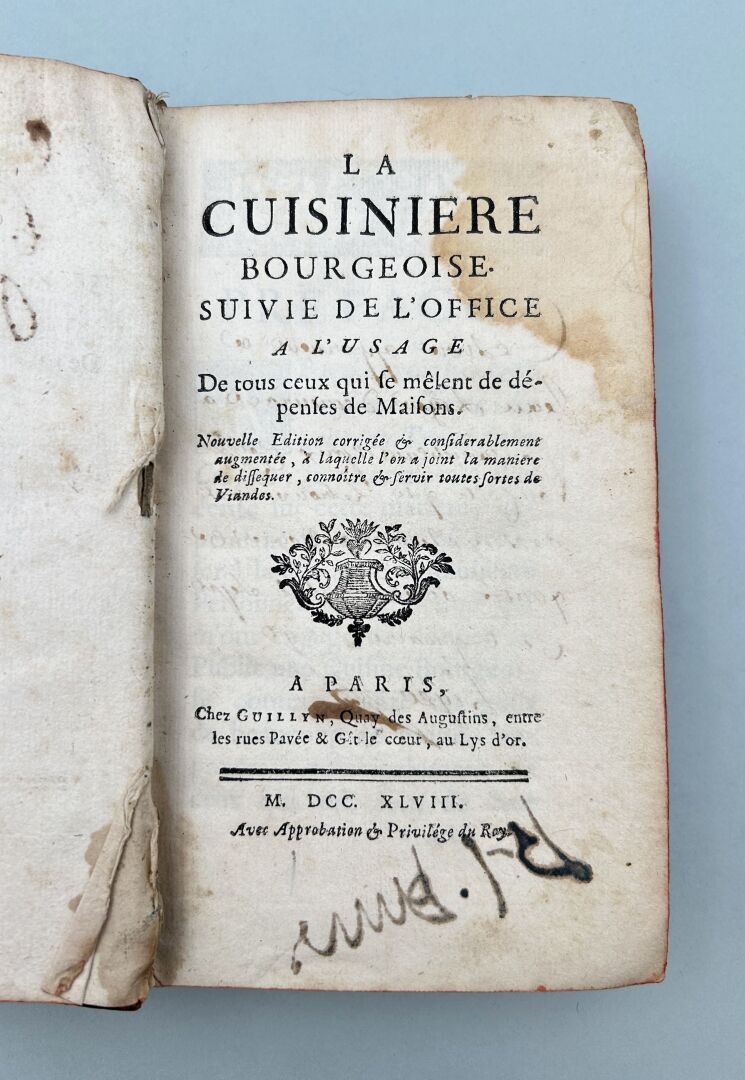 LA
CUISINIERE
BOURGEOISE.
SUIVIE DE L'OFFICE
A L'USAGE
De tous ceux qui ſe mêlent de dé-
penſes de Maiſons.
Nouvelle Edition corrigée & conſiderablement
augmentée, à laquelle l'on a joint la maniere
de diſſequer, connoître & ſervir toutes ſortes de
Viandes.
A PARIS,
Chez GUILLYN, Quay des Auguſtins, entre
les rues Pavée & Gît le cœur, au Lys d'or.
M. DCC. XLVIII.
Avec Approbation & Privilége du Roy.